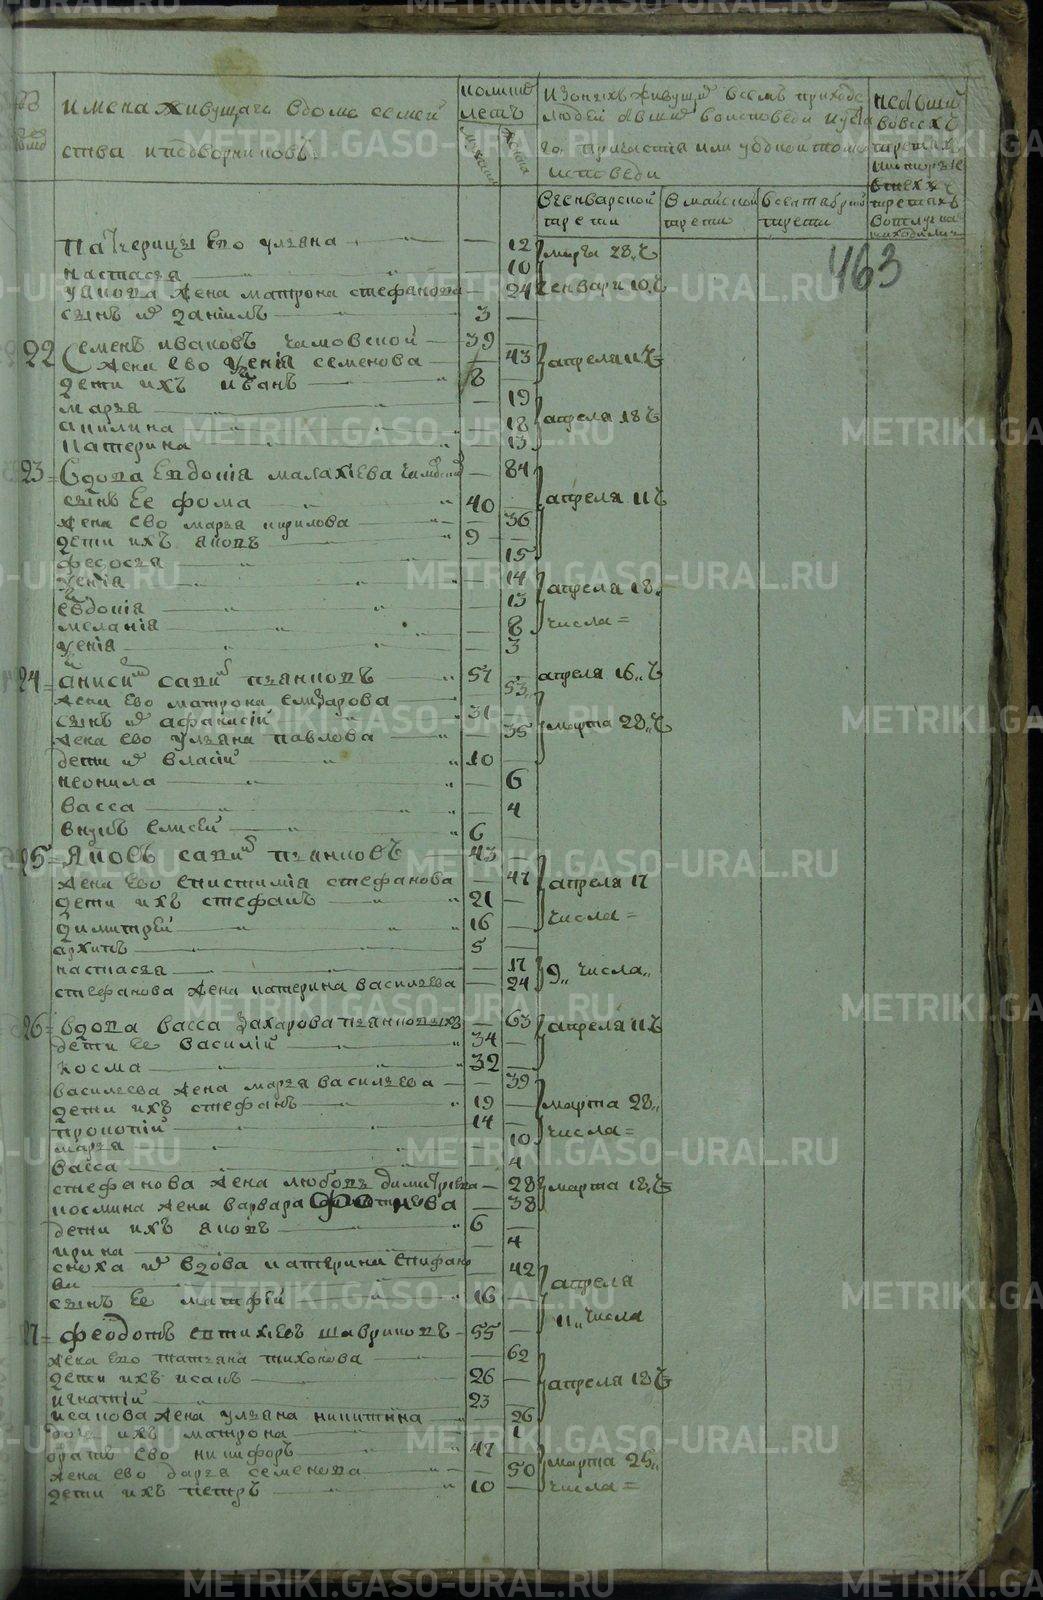 имена живущихъ вдоме семей
ства и подворниковъ
колико
летъ
мужеска
женска
изонихъ живущий всемъ приходе
людей бывши воисповеди и у
го причастия или уодной токмо
исповеди
небывши
вовсехъ
третяхъ
вгенварской
трети
в майской
трети
всентябрской
трети
463
пачерицы его улѣяна 12 марта 28 ч
настасѣя 10
якова жена матрона стефанова 24 генваря 10 ч
сынъ данiилъ 3
22 Семенъ ивановъ чамовской 39
жена ево ксенiя семенова 43 апреля 11 ч
дети ихъ иванъ 8
марѣя 19
акилина 18 апреля 18 ч
катерина 13
23 вдова евдокiя малахiева 84
сынъ ее фома 40 апреля 11 ч
жена ево марѣя кирилова 36
дети ихъ яковъ 9
федосѣя 15
ксенiя 14 апреля 18
евдокiя 13
меланiя 8 числа
ксенiя 3
24 анисим сапи пьянковъ 57 апреля 16 ч
жена ево матрона елизарова 53
сынъ афанасiй 31 марта 28 ч
жена ево улѣяна павлова 35
дети власiй 10
неонила 6
васса 4
внукъ елисей 6
25 Яковъ сапи пьянковъ 43
жена ево епистимiя стефанова 47 апреля 17
дети ихъ стефанъ 21
димитрей 16 числа
архипъ 5
настасѣя 17
стефанова жена катерина васильева 24 9 числа
26 вдова васса захарова пьянковыхъ 63 апреля 11 ч
дети ее василiй 34
косма 32
васильева жена марѣя васильева 39
дети ихъ стефанъ 19 марта 28
прокопiй 14
марѣя 10 числа
васса 4
стефанова жена любовь димитрiева 28 марта 18 ч
космина жена варвара фокиева 38
дети ихъ яковъ 6
ирина 4
сноха вдова катерина епифано
ва 42 апреля
сынъ ее матфей 16 11 числа
27 феодотъ евтихiевъ шавриковъ 55
жена ево татьяна тихонова 62
дети ихъ исакъ 26 апреля 18 ч
игнатiй 23
исакова жена улѣяна никитина 26
дочь ихъ матрона 1
братъ ево никифоръ 47
жена ево дарѣя семенова 50 марта 25
дети ихъ петръ 10 числа
METRIKI.GASO-URAL.RU